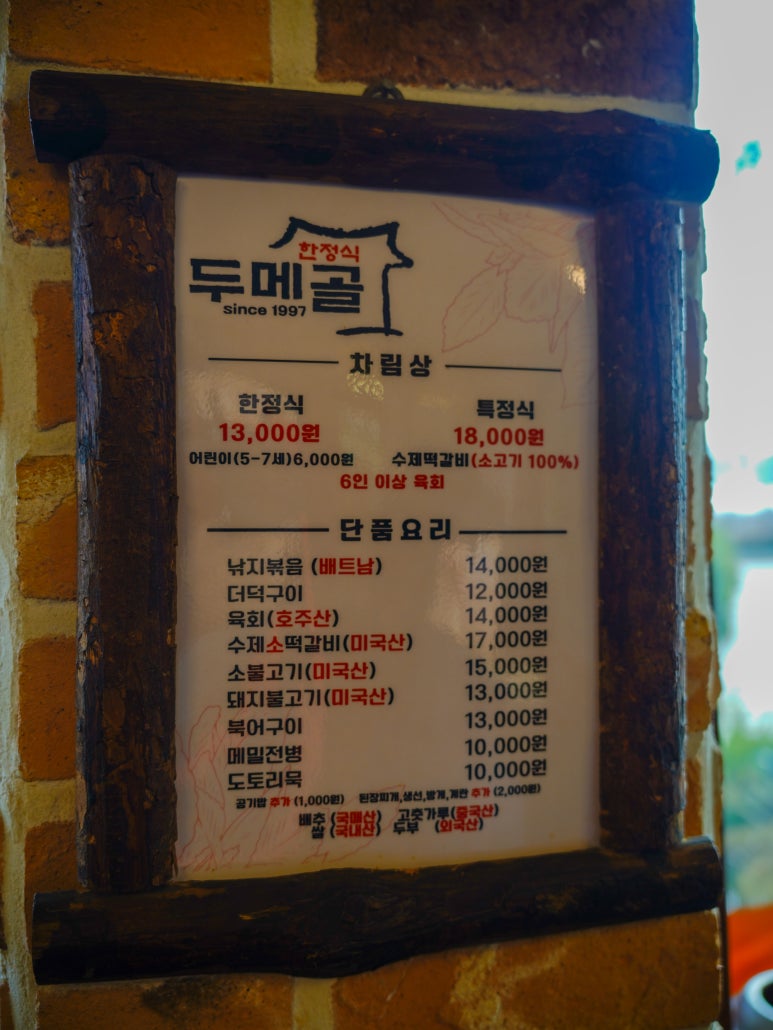 한정식
두메골
since 1997
차림상
한정식 특정식
13,000원 18,000원
어린이(5-7세)6,000원 수제떡갈비(소고기 100%)
6인 이상 육회
단품요리
낚지볶음 (배트남) 14,000원
더덕구이 12,000원
육회(호주산) 14,000원
수제소떡갈비(미국산) 17,000원
소불고기(미국산) 15,000원
돼지불고기(미국산) 13,000원
북어구이 13,000원
메밀전병 10,000원
도토리묵 10,000원
공기밥 추가 (1,000원) 된장찌개,생선,방게,계란 추가 (2,000원)
배추 고춧가루(중국산)
쌀 (국내산) 두부 (외국산)